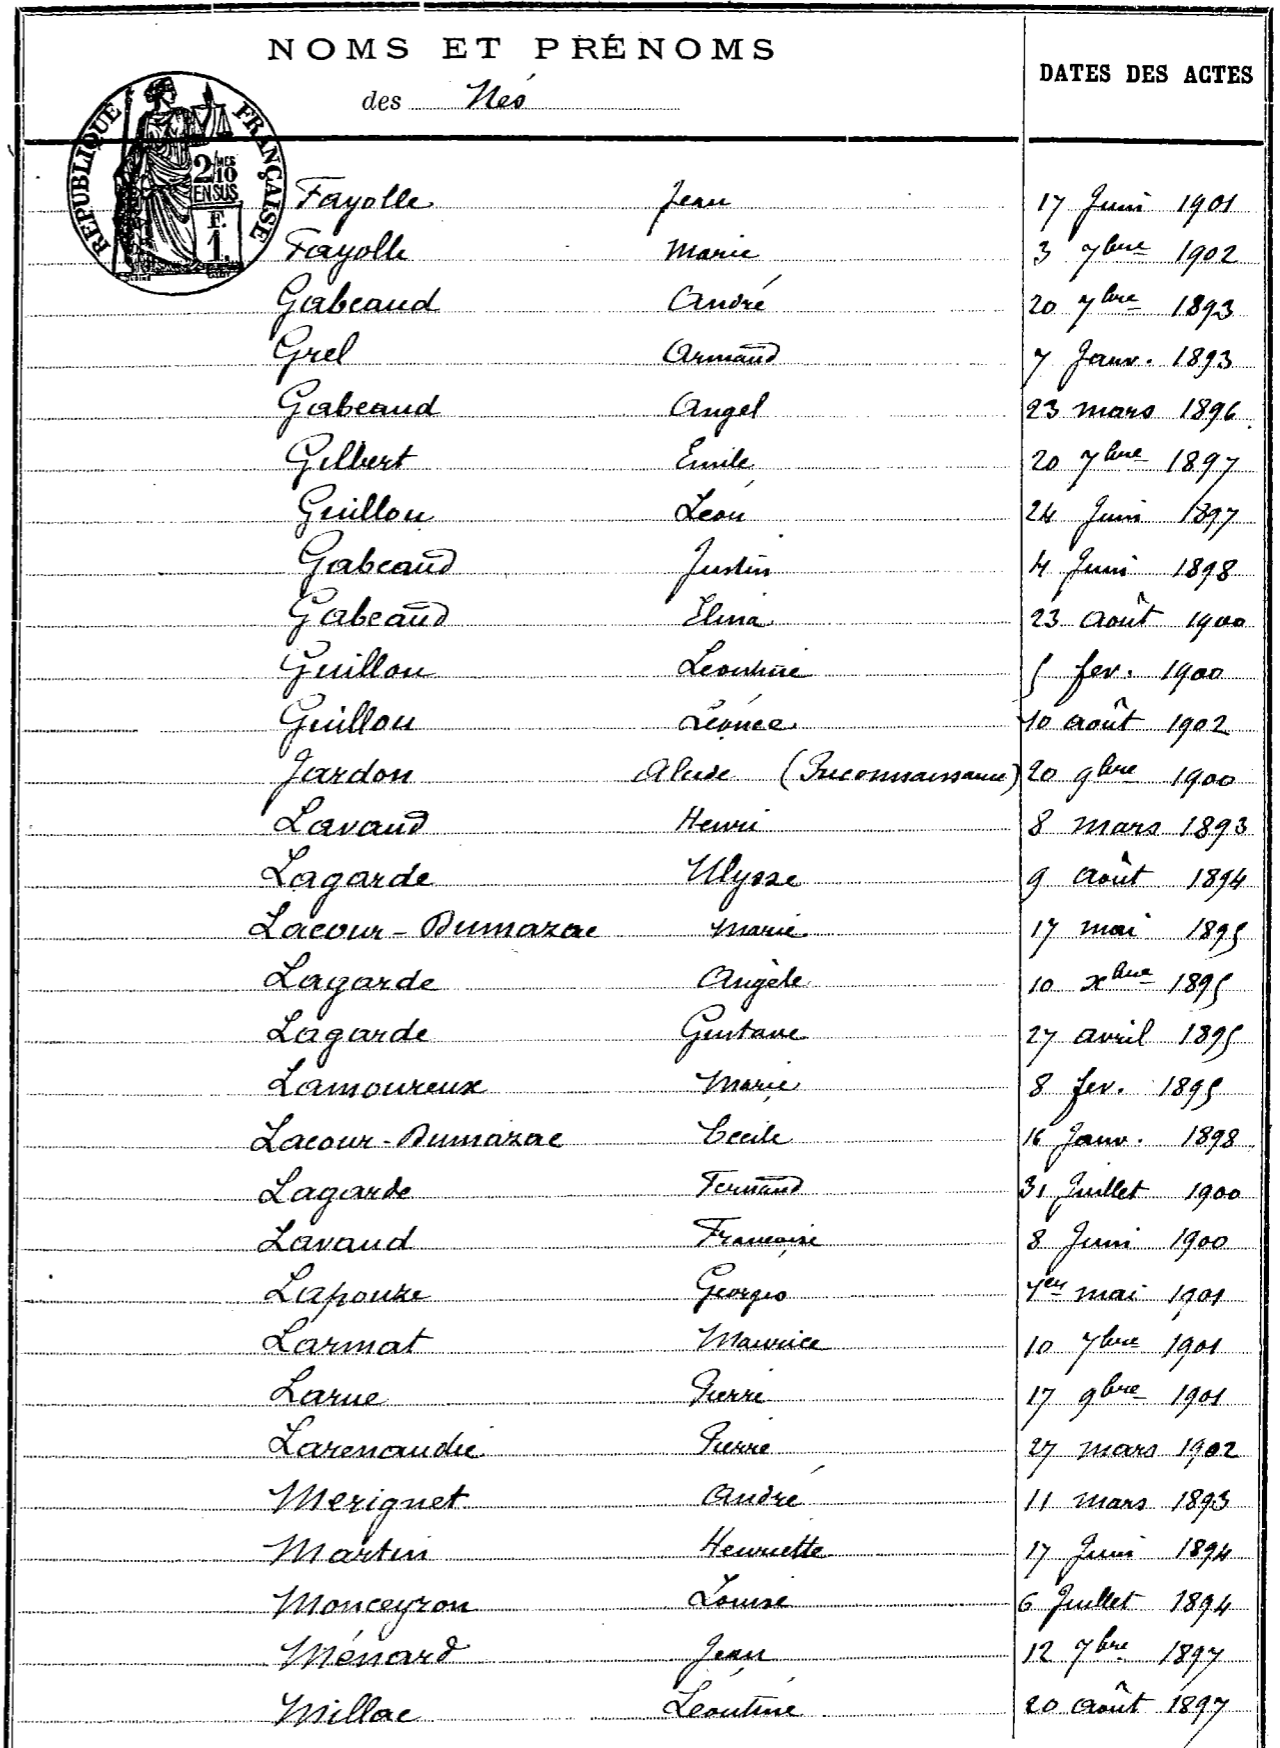 NOMS ET PRÉNOMS
des Nés
DATES DES ACTES
RÉPUBLIQUE FRANÇAISE
2/10 MES
EN SUS
F.
1.
Fayolle Jean 17 Juin 1901
Fayolle Marie 3 7bre 1902
Gabeaud André 20 7bre 1893
Grel Armand 7 Janv. 1893
Gabeaud Angel 23 mars 1896
Gilbert Emile 20 7bre 1897
Guillou Léon 24 Juin 1897
Gabeaud Justin 4 Juin 1898
Gabeaud Elina 23 août 1900
Guillou Leontine 5 fev. 1900
Guillou Léonce 10 août 1902
Jardon Alcide (Reconnaissance) 20 9bre 1900
Lavaud Henri 8 mars 1893
Lagarde Ulysse 9 août 1894
Lacour-Dumazac Marie 17 mai 1895
Lagarde Angèle 10 xbre 1895
Lagarde Gustave 27 avril 1895
Lamoureux Marie 8 fev. 1895
Lacour-Dumazac Cecile 16 Janv. 1898
Lagarde Fernand 31 Juillet 1900
Lavaud Françoise 8 Juin 1900
Lapouze Georges 1er mai 1901
Larmat Maurice 10 7bre 1901
Larue Pierre 17 9bre 1901
Larenaudie Pierre 27 mars 1902
Merignet André 11 mars 1893
Martin Henriette 17 Juin 1894
Monceyron Louise 6 Juillet 1894
Ménard Jean 12 7bre 1897
Millac Léontine 20 août 1897